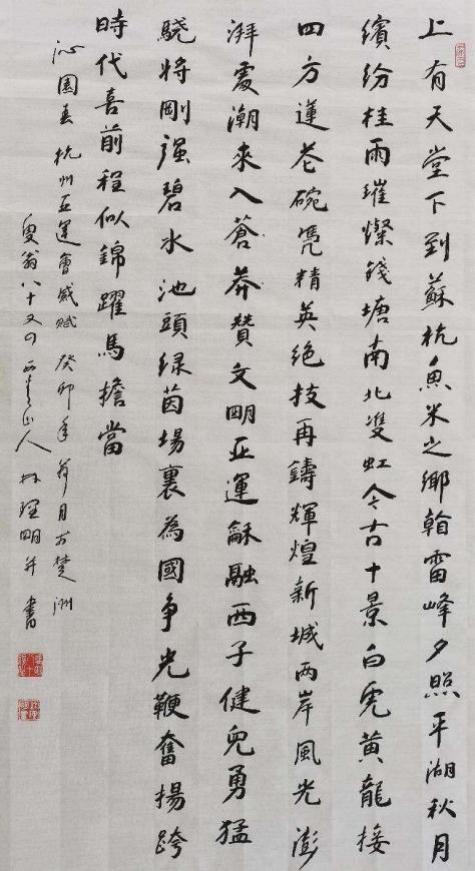 上有天堂下到蘇杭魚米之鄉雷峰夕照平湖秋月
繽紛桂雨璀燦錢塘南北雙虹今古十景白虎黃龍接
四方蓮花碗凴精英絕技再鑄輝煌新城兩岸風光澎
湃震潮來入蒼莽贊文明亞運龢融西子健兒勇猛
驍將剛強碧水池頭绿茵場裏為國爭光鞭奮揚跨
時代喜前程似錦躍馬擔當
沁園春 杭州亞運會感賦 癸卯年月於楚洲
叟翁八十又山人理明并書